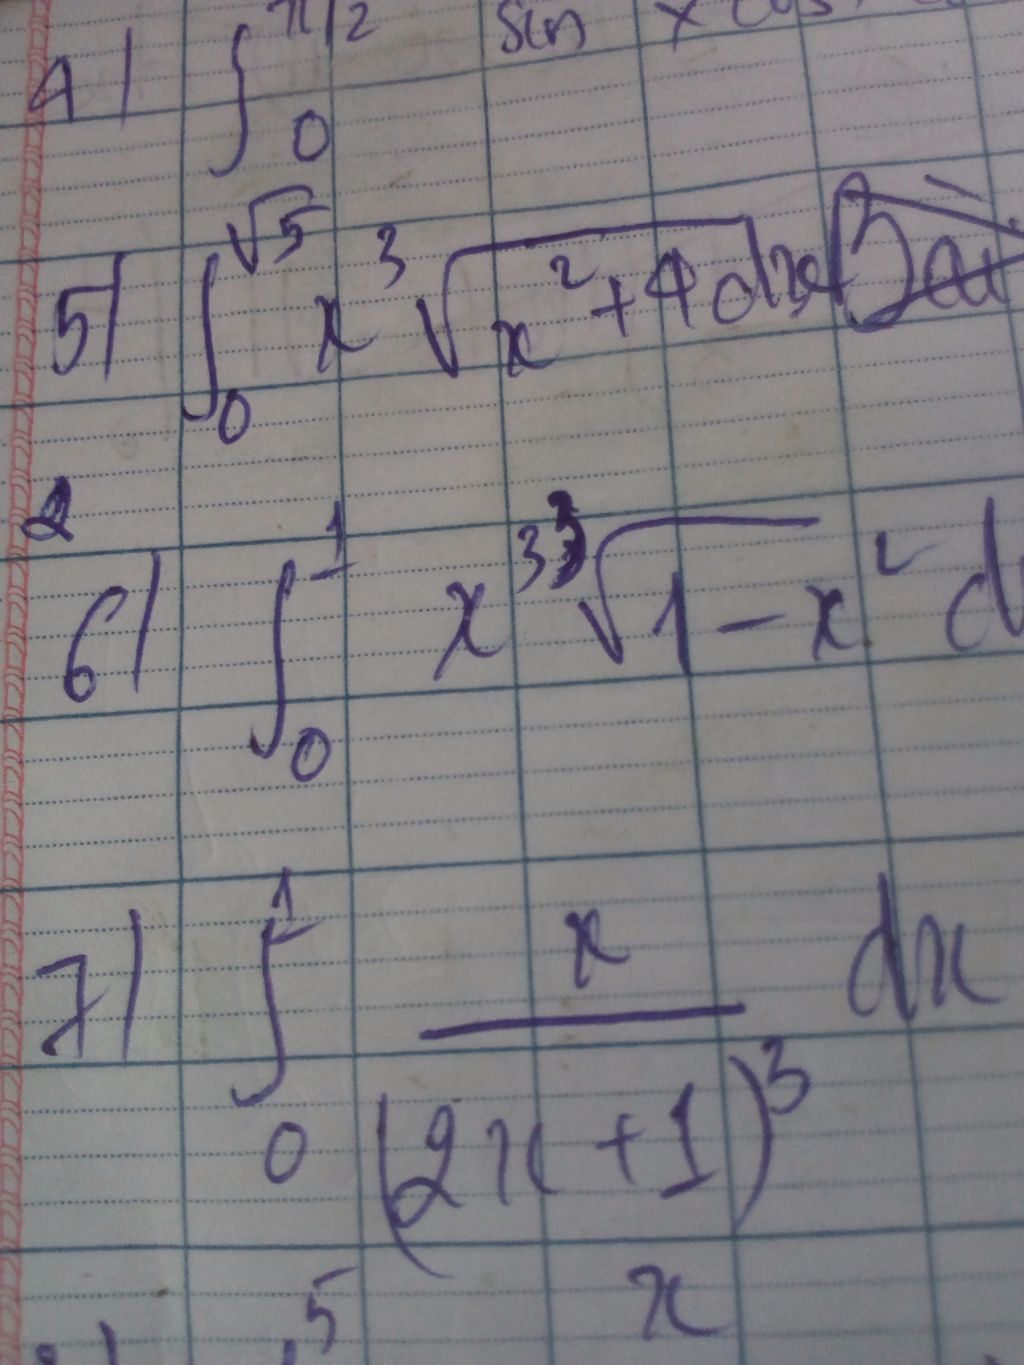 4| ∫₀^{π/2} sin x cos
5| ∫₀^{√5} x³ √(x²+4) dx
6| ∫₀¹ x³ ³√(1-x²) d
7| ∫₀¹ x/(2x+1)³ dx
5 x